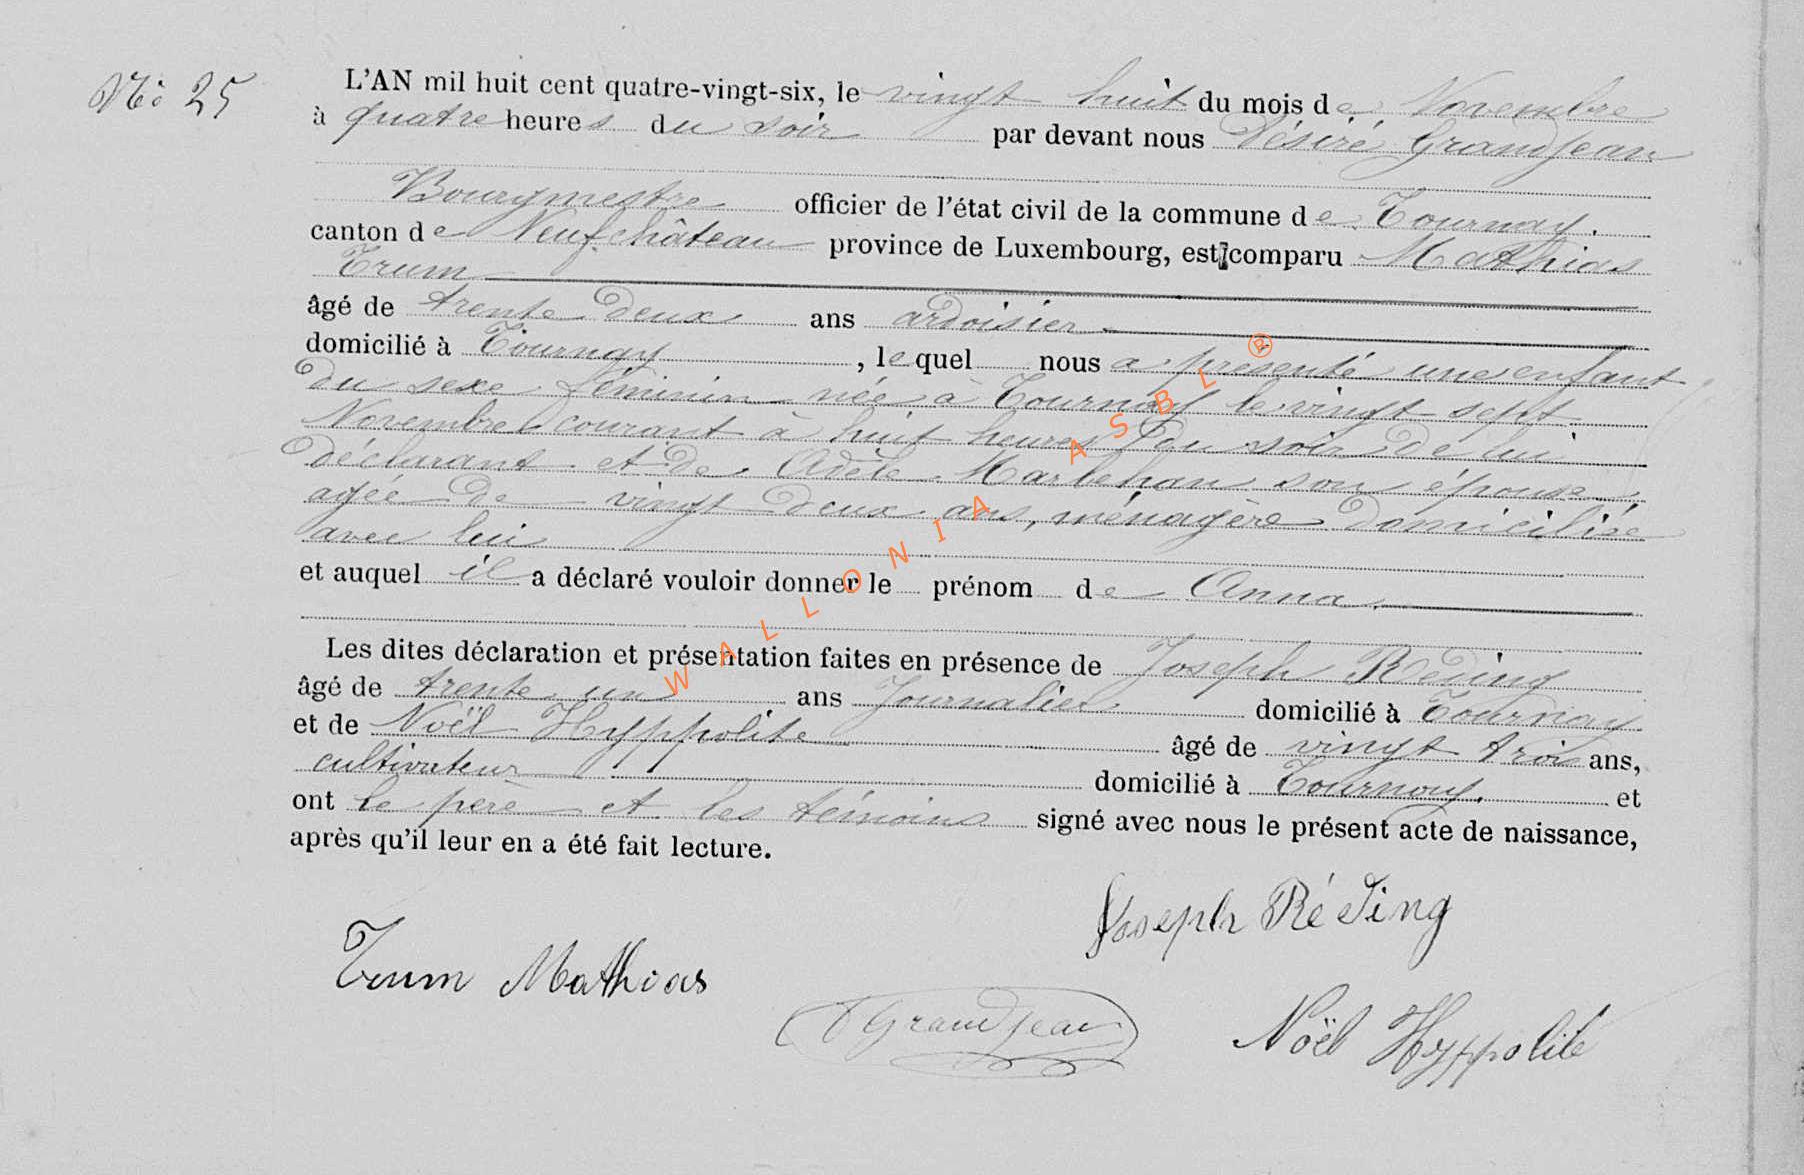 No: 25
L'AN mil huit cent quatre-vingt-six, le vingt huit du mois de Novembre
à quatre heures du soir par devant nous Désiré Grandjean
Bourgmestre officier de l'état civil de la commune de Tournay.
canton de Neufchâteau province de Luxembourg, est comparu Mathias
Trum
âgé de trente deux ans ardoisier
domicilié à Tournay, lequel nous a présenté une enfant
du sexe féminin née à Tournay le vingt sept
Novembre courant à huit heures du soir de lui
déclarant et de Adèle Marbehan son épouse,
agée de vingt deux ans, ménagère domiciliée
avec lui
et auquel il a déclaré vouloir donner le prénom de Anna.
Les dites déclaration et présentation faites en présence de Joseph Réding
âgé de trente un ans Journalier domicilié à Tournay
et de Noël Hyppolite âgé de vingt trois ans,
cultivateur domicilié à Tournay. et
ont le père et les témoins signé avec nous le présent acte de naissance,
après qu'il leur en a été fait lecture.
Joseph Réding
Trum Mathias
Grandjean
Noël Hyppolite
WALLONIA ASBL ®